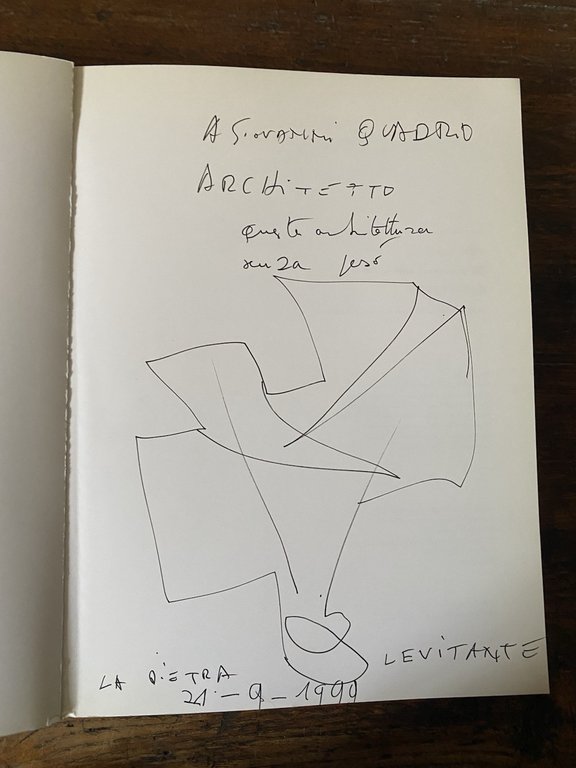 A GiOVANNi QUADRIO
ARCHiTETTO
queste architetture
senza peso
LA PiETRA LEViTANTE
21-9-1999